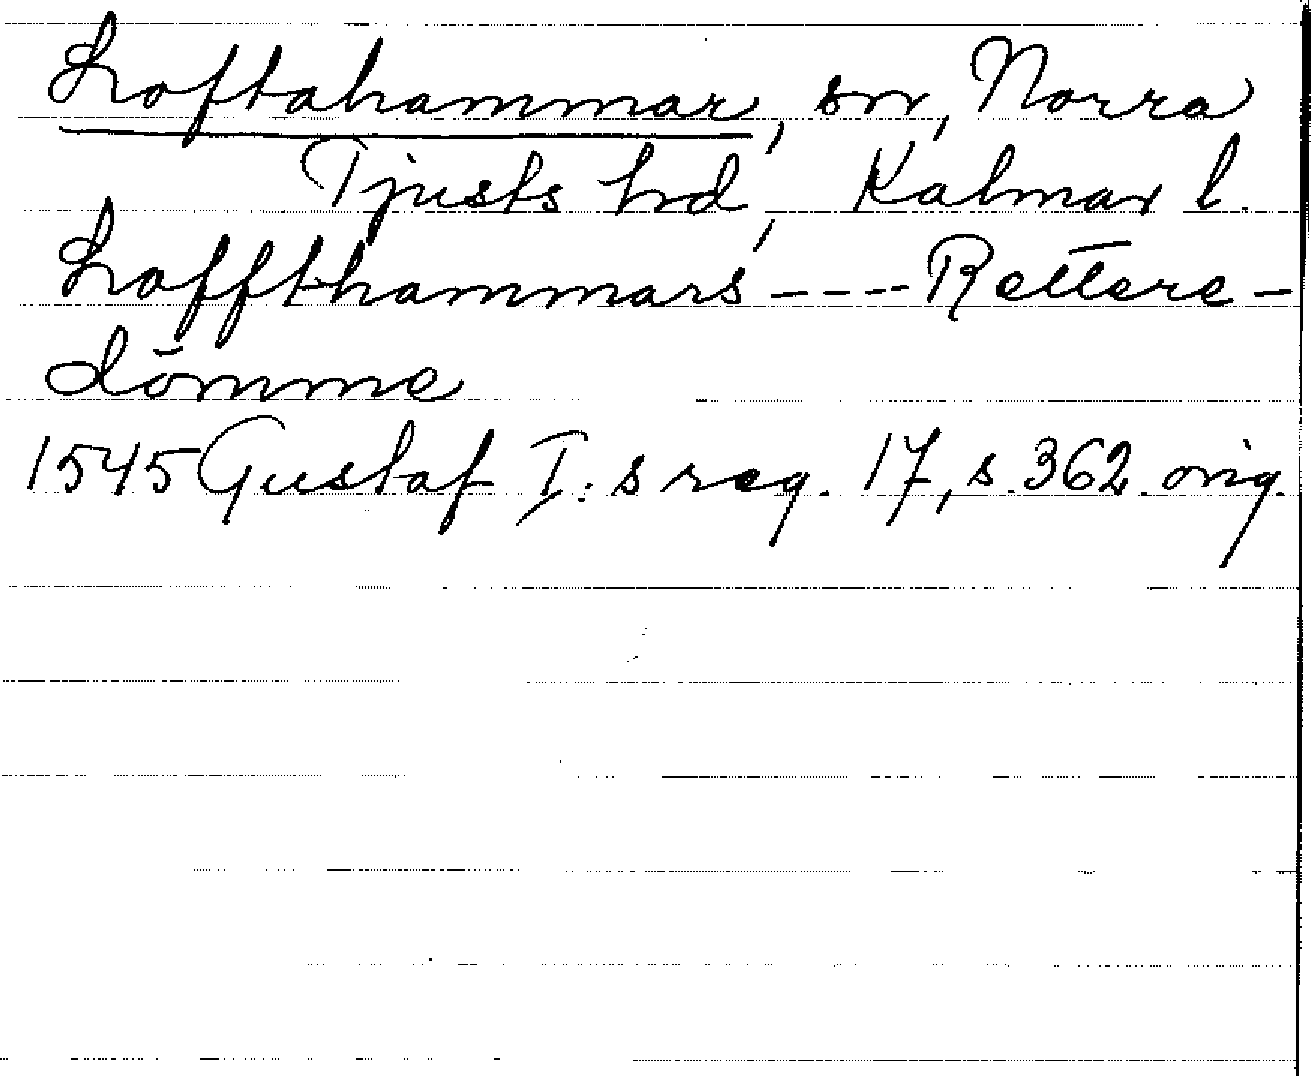 Loftahammar, sn, Norra
Tjusts hd, Kalmar l.
Loffthammars - - - - Rettere-
dömme
1545 Gustaf I:s reg. 17, s. 362. orig.